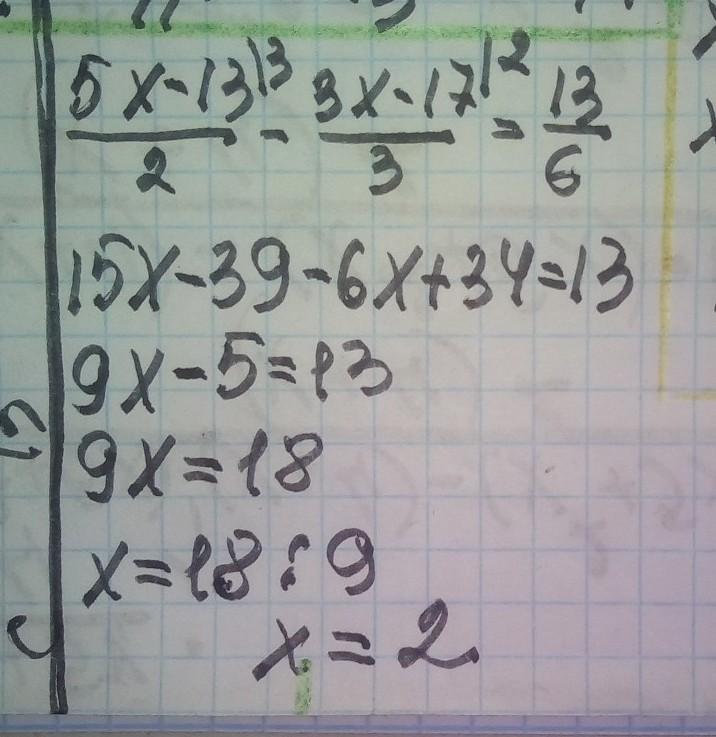 5x-13|3 / 2 - 3x-17|2 / 3 = 13/6
15x-39-6x+34=13
9x-5=13
9x=18
x=18:9
x=2